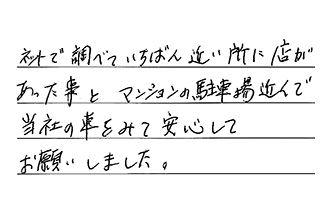 ネットで調べていちばん近い所に店が
あった事と マンションの駐車場近んで
当社の車をみて安心して
お願いしました。